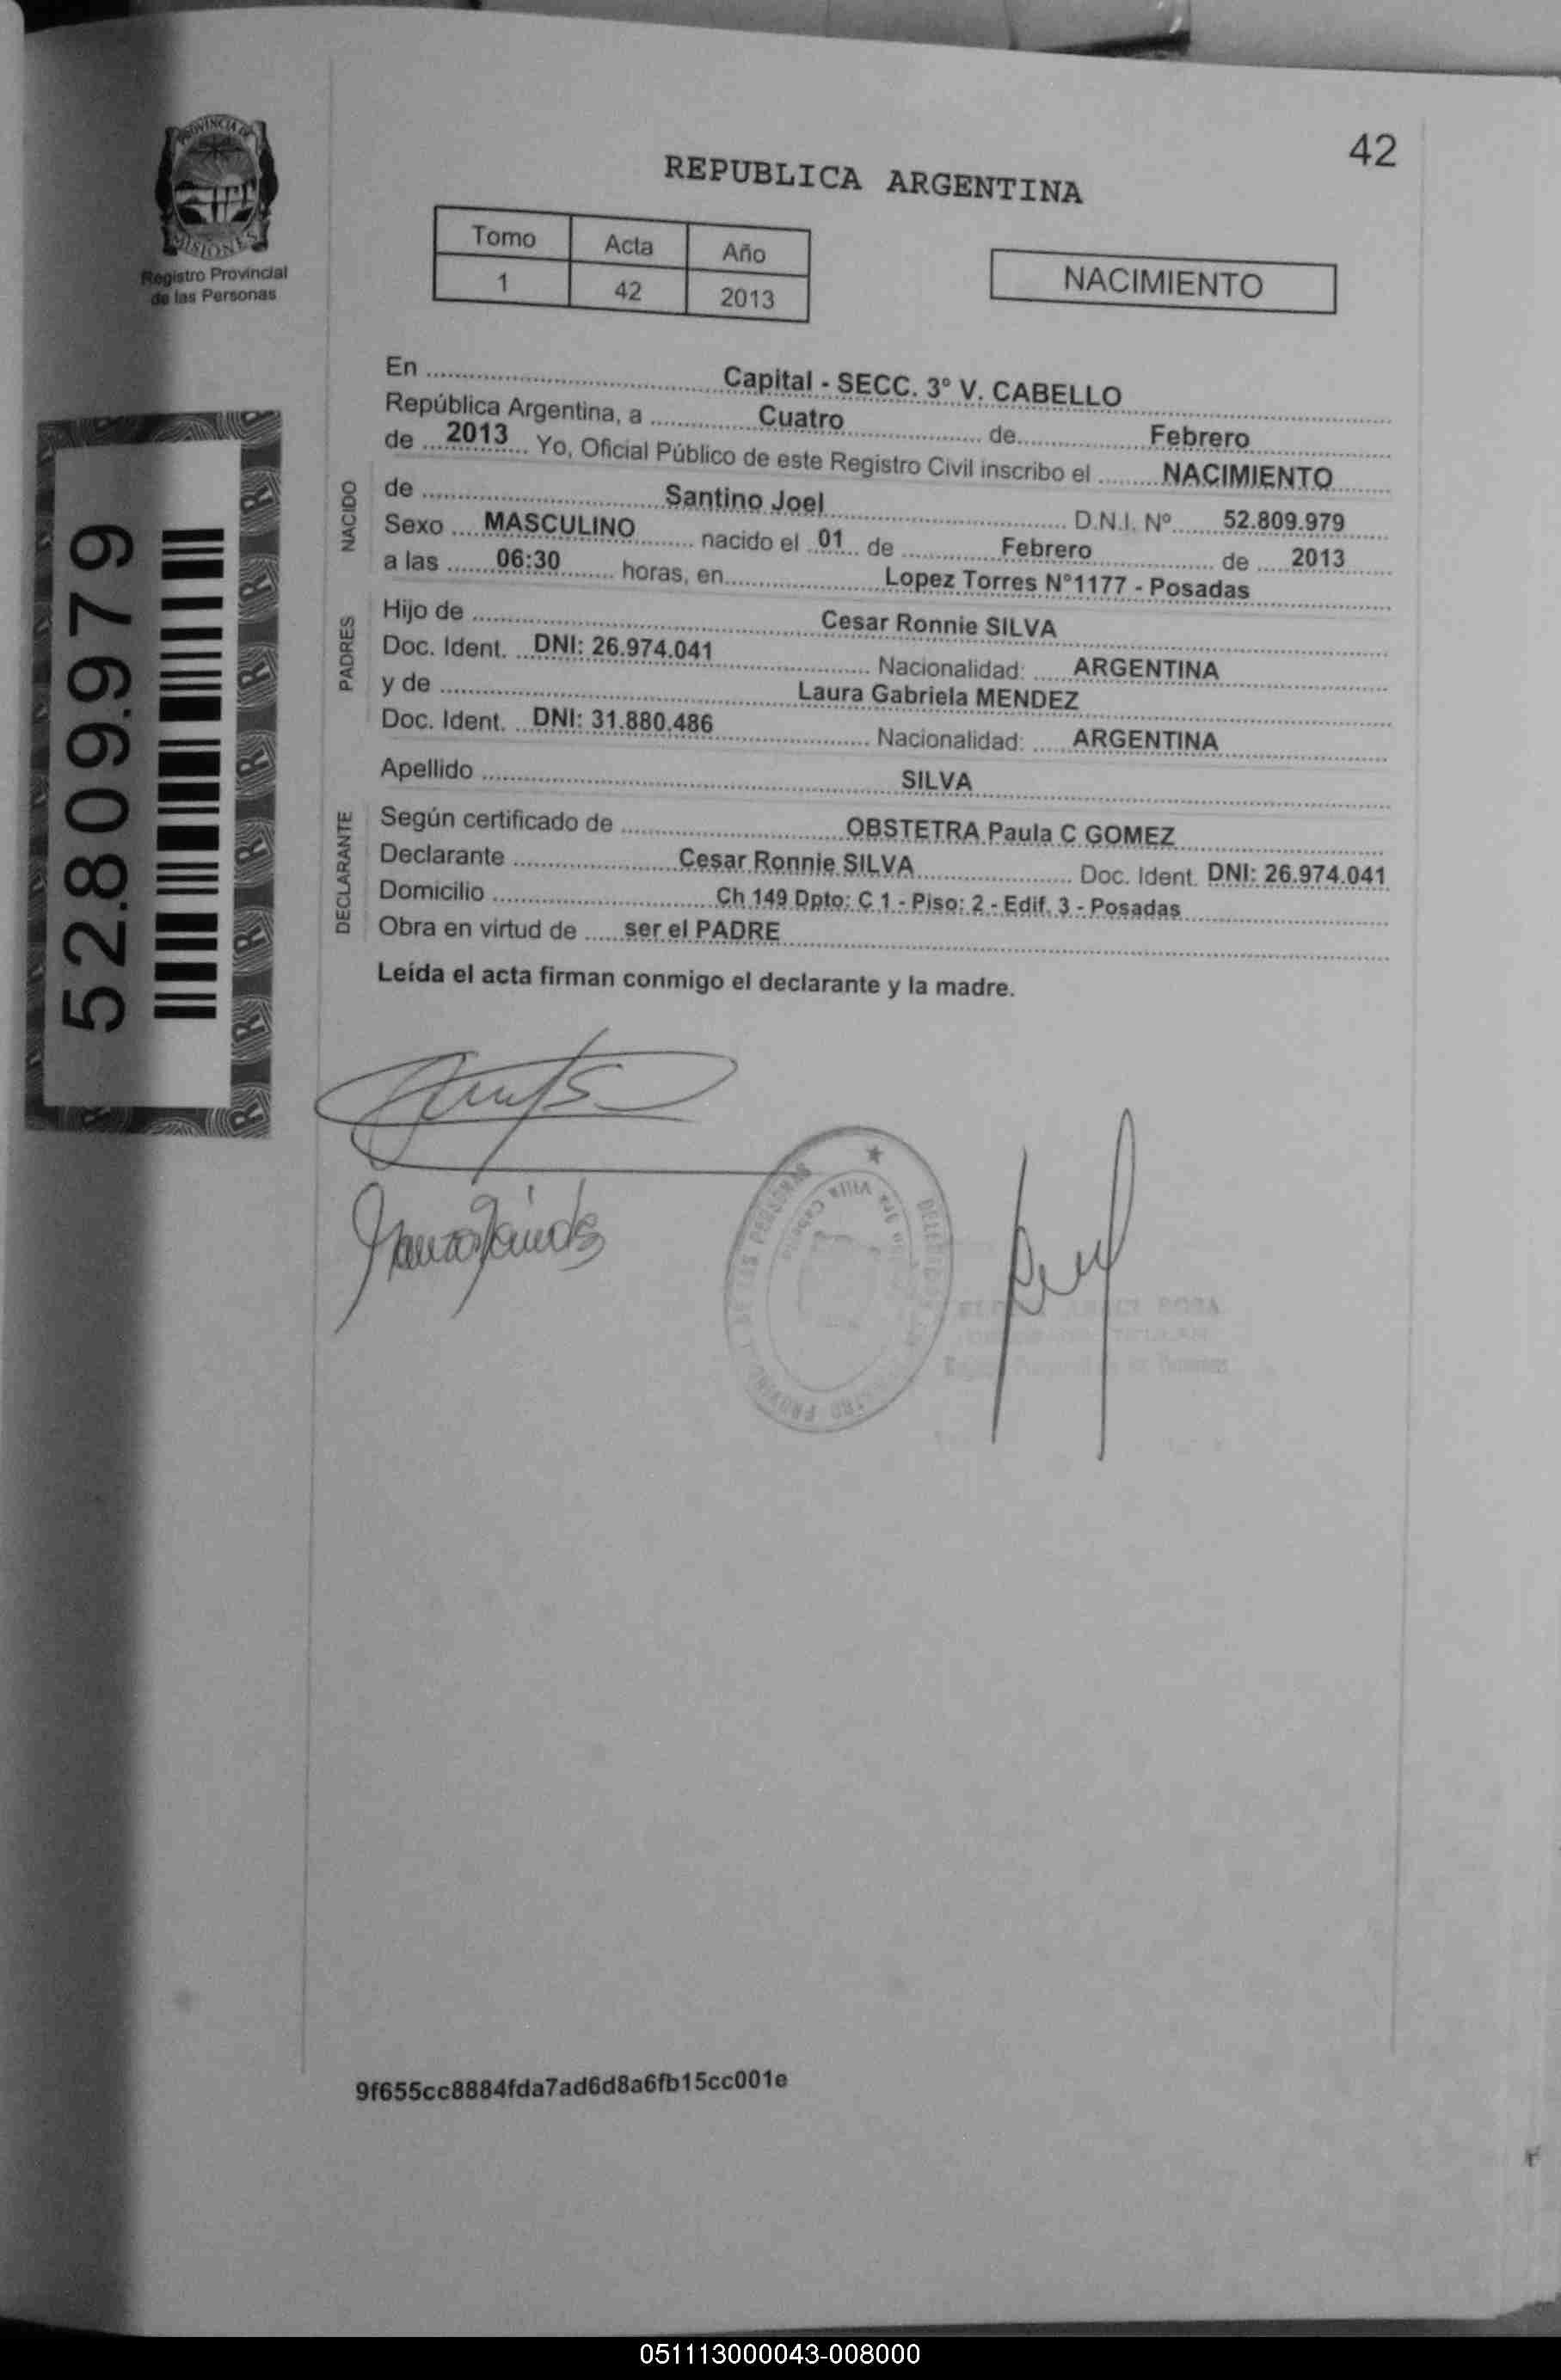 42
PROVINCIA DE
MISIONES
Registro Provincial
de las Personas
REPUBLICA ARGENTINA
Tomo Acta Año
1 42 2013
NACIMIENTO
En Capital - SECC. 3° V. CABELLO
República Argentina, a Cuatro de Febrero
de 2013 Yo, Oficial Público de este Registro Civil inscribo el NACIMIENTO
NACIDO
de Santino Joel D.N.I. Nº 52.809.979
Sexo MASCULINO nacido el 01 de Febrero de 2013
a las 06:30 horas, en Lopez Torres N°1177 - Posadas
PADRES
Hijo de Cesar Ronnie SILVA
Doc. Ident. DNI: 26.974.041 Nacionalidad: ARGENTINA
y de Laura Gabriela MENDEZ
Doc. Ident. DNI: 31.880.486 Nacionalidad: ARGENTINA
Apellido SILVA
DECLARANTE
Según certificado de OBSTETRA Paula C GOMEZ
Declarante Cesar Ronnie SILVA Doc. Ident. DNI: 26.974.041
Domicilio Ch 149 Dpto: C 1 - Piso: 2 - Edif. 3 - Posadas
Obra en virtud de ser el PADRE
Leída el acta firman conmigo el declarante y la madre.
52.809.979
9f655cc8884fda7ad6d8a6fb15cc001e
051113000043-008000